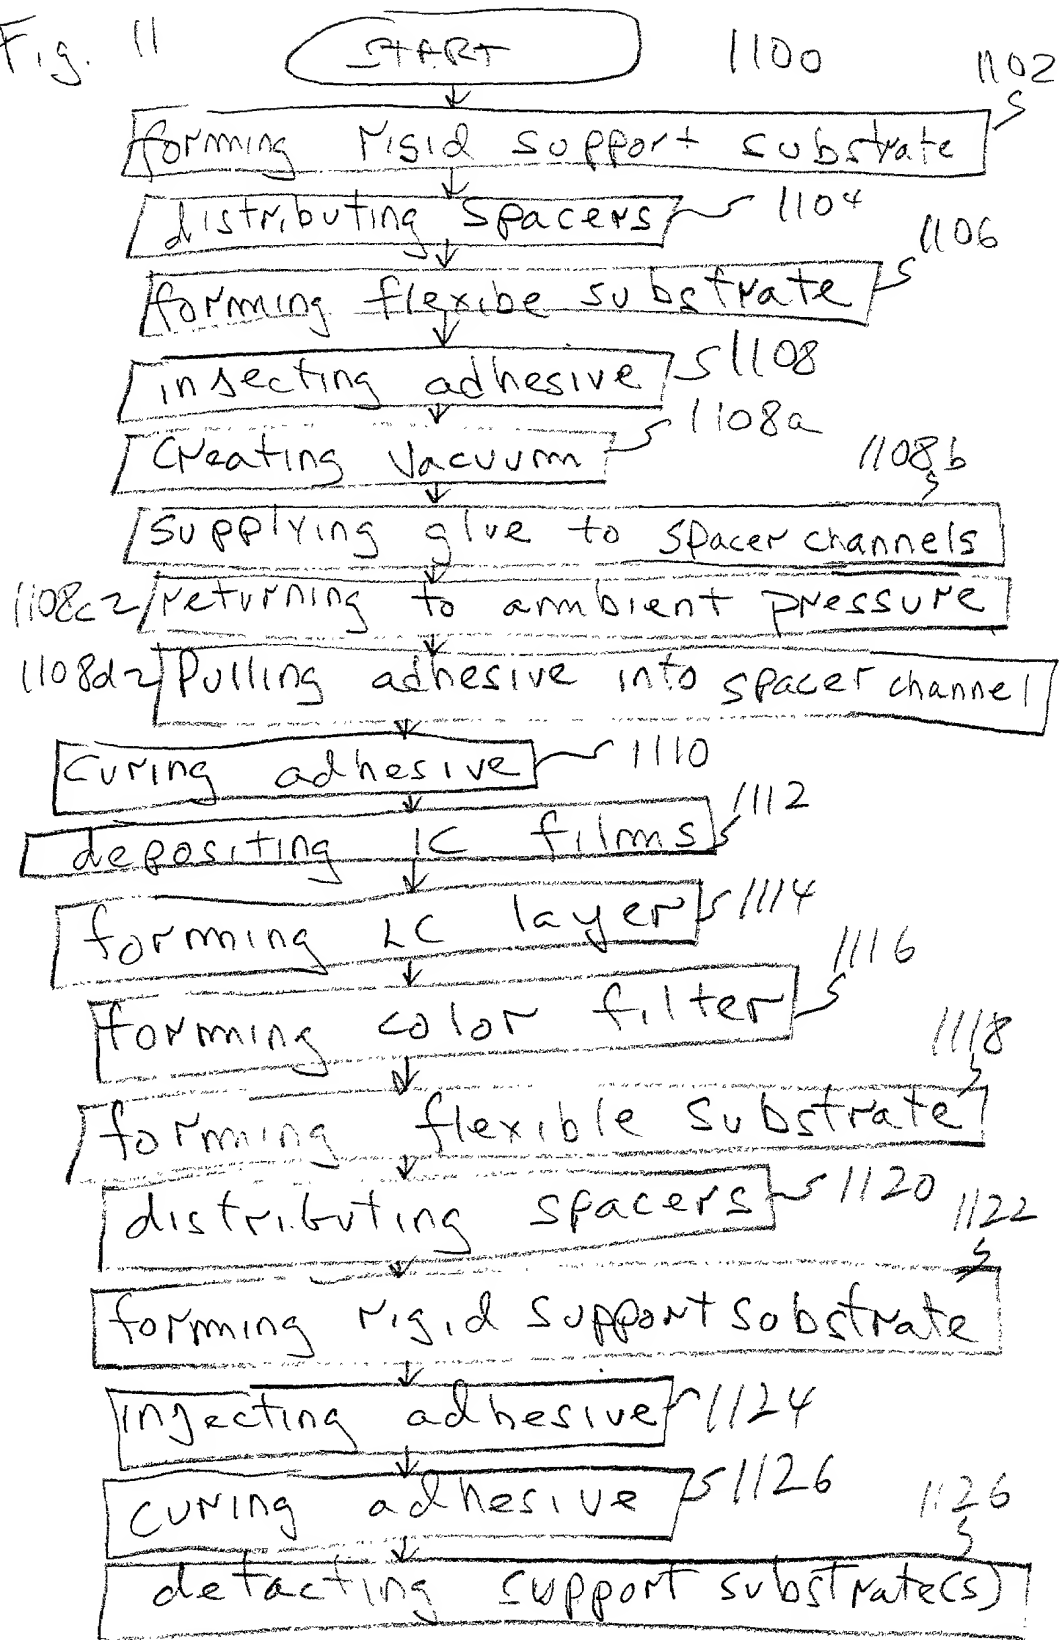 Fig. 11
START 1100
1102
forming rigid support substrate
distributing spacers 1104
1106
forming flexibe substrate
insecting adhesive 1108
creating vacuum 1108a
1108b
supplying glue to spacer channels
1108c returning to ambient pressure
1108d Pulling adhesive into spacer channel
curing adhesive 1110
depositing IC films 1112
forming LC layer 1114
1116
forming color filter
1118
forming flexible substrate
distributing spacers 1120
1122
forming rigid support sobstrate
injecting adhesive 1124
curing adhesive 1126
1126
detacting support substrate(s)